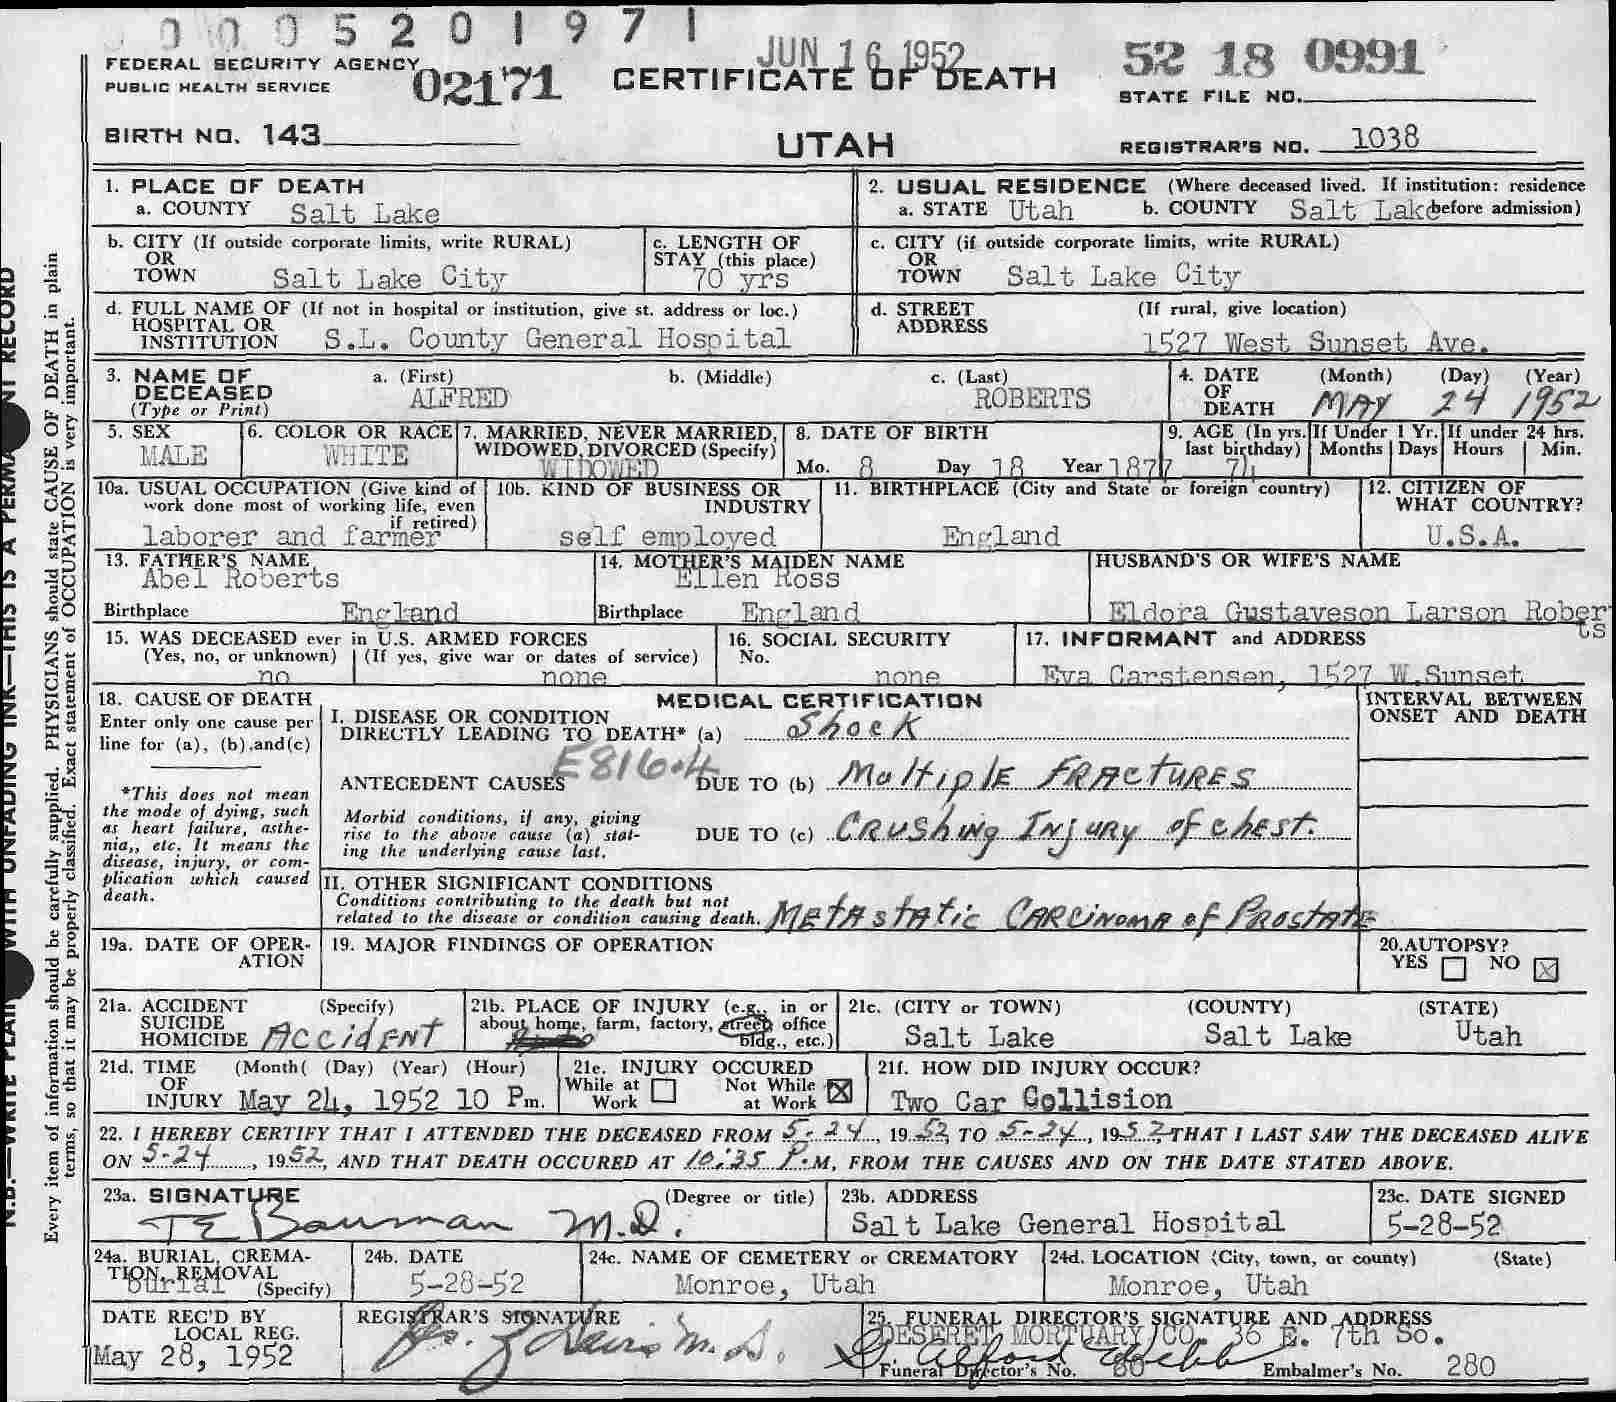 0 0 0 5 2 0 1 9 7 1
FEDERAL SECURITY AGENCY
PUBLIC HEALTH SERVICE
02171
JUN 16 1952
CERTIFICATE OF DEATH
52 18 0991
STATE FILE NO.
BIRTH NO. 143
UTAH
REGISTRAR'S NO. 1038
1. PLACE OF DEATH
a. COUNTY Salt Lake
2. USUAL RESIDENCE (Where deceased lived. If institution: residence before admission)
a. STATE Utah b. COUNTY Salt Lake
b. CITY (If outside corporate limits, write RURAL)
OR
TOWN Salt Lake City
c. LENGTH OF
STAY (this place)
70 yrs
c. CITY (if outside corporate limits, write RURAL)
OR
TOWN Salt Lake City
d. FULL NAME OF (If not in hospital or institution, give st. address or loc.)
HOSPITAL OR
INSTITUTION S.L. County General Hospital
d. STREET (If rural, give location)
ADDRESS
1527 West Sunset Ave.
3. NAME OF
DECEASED
(Type or Print)
a. (First) b. (Middle) c. (Last)
ALFRED ROBERTS
4. DATE (Month) (Day) (Year)
OF
DEATH MAY 24 1952
5. SEX
MALE
6. COLOR OR RACE
WHITE
7. MARRIED, NEVER MARRIED,
WIDOWED, DIVORCED (Specify)
WIDOWED
8. DATE OF BIRTH
Mo. 8 Day 18 Year 1877
9. AGE (In yrs.
last birthday)
74
If Under 1 Yr.
Months Days
If under 24 hrs.
Hours Min.
10a. USUAL OCCUPATION (Give kind of
work done most of working life, even
if retired)
laborer and farmer
10b. KIND OF BUSINESS OR
INDUSTRY
self employed
11. BIRTHPLACE (City and State or foreign country)
England
12. CITIZEN OF
WHAT COUNTRY?
U.S.A.
13. FATHER'S NAME
Abel Roberts
Birthplace England
14. MOTHER'S MAIDEN NAME
Ellen Ross
Birthplace England
HUSBAND'S OR WIFE'S NAME
Eldora Gustaveson Larson Rober
ts
15. WAS DECEASED ever in U.S. ARMED FORCES
(Yes, no, or unknown) (If yes, give war or dates of service)
no none
16. SOCIAL SECURITY
No.
none
17. INFORMANT and ADDRESS
Eva Carstensen, 1527 W.Sunset
18. CAUSE OF DEATH
Enter only one cause per
line for (a), (b),and(c)
*This does not mean
the mode of dying, such
as heart failure, asthe-
nia,, etc. It means the
disease, injury, or com-
plication which caused
death.
MEDICAL CERTIFICATION
INTERVAL BETWEEN
ONSET AND DEATH
I. DISEASE OR CONDITION
DIRECTLY LEADING TO DEATH* (a) Shock
E816.4
ANTECEDENT CAUSES DUE TO (b) Multiple FRACTURES
Morbid conditions, if any, giving
rise to the above cause (a) stat-
ing the underlying cause last.
DUE TO (c) CRUSHING INJURY of chest.
II. OTHER SIGNIFICANT CONDITIONS
Conditions contributing to the death but not
related to the disease or condition causing death. METASTATIC CARCINOMA of PROSTATE
19a. DATE OF OPER-
ATION
19. MAJOR FINDINGS OF OPERATION
20.AUTOPSY?
YES NO X
21a. ACCIDENT (Specify)
SUICIDE
HOMICIDE ACCIDENT
21b. PLACE OF INJURY (e.g., in or
about home, farm, factory, street, office
bldg., etc.)
21c. (CITY or TOWN) (COUNTY) (STATE)
Salt Lake Salt Lake Utah
21d. TIME (Month( (Day) (Year) (Hour)
OF
INJURY May 24, 1952 10 Pm.
21e. INJURY OCCURED
While at Work Not While at Work X
21f. HOW DID INJURY OCCUR?
Two Car Collision
22. I HEREBY CERTIFY THAT I ATTENDED THE DECEASED FROM 5-24, 1952, TO 5-24, 1952, THAT I LAST SAW THE DECEASED ALIVE
ON 5-24, 1952, AND THAT DEATH OCCURED AT 10:35 P.M, FROM THE CAUSES AND ON THE DATE STATED ABOVE.
23a. SIGNATURE (Degree or title)
T E Bauman M.D.
23b. ADDRESS
Salt Lake General Hospital
23c. DATE SIGNED
5-28-52
24a. BURIAL, CREMA-
TION, REMOVAL
(Specify)
Burial
24b. DATE
5-28-52
24c. NAME OF CEMETERY or CREMATORY
Monroe, Utah
24d. LOCATION (City, town, or county) (State)
Monroe, Utah
DATE REC'D BY
LOCAL REG.
May 28, 1952
REGISTRAR'S SIGNATURE
M.D.
25. FUNERAL DIRECTOR'S SIGNATURE AND ADDRESS
DESERET MORTUARY CO. 36 E. 7th So.
Funeral Director's No. 80 Embalmer's No. 280
N.B.—WRITE PLAIN WITH UNFADING INK—THIS IS A PERMANENT RECORD
Every item of information should be carefully supplied. PHYSICIANS should state CAUSE OF DEATH in plain
terms, so that it may be properly classified. Exact statement of OCCUPATION is very important.